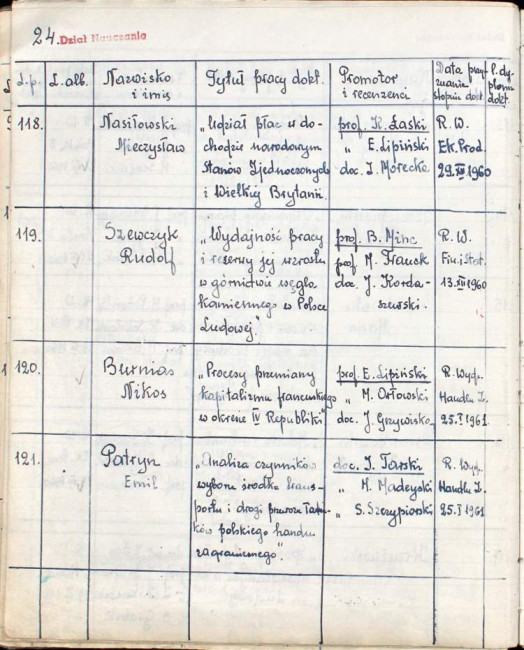 24. Dział Nauczania
L.p. L. alb. Nazwisko i imię Tytuł pracy dokt. Promotor i recenzenci Data przyznania stopnia dokt. l. dyplomu dokt.
118. Nasiłowski „Udział płac w do- prof. K. Łaski R. W.
Mieczysław chodzie narodowym „ E. Lipiński Ek. Prod.
Stanów Zjednoczonych doc. Z. Morecka 29.XII 1960
i Wielkiej Brytanii.
119. Szewczyk „Wydajność pracy prof. B. Minc R. W.
Rudolf i rezerwy jej wzrostu prof. M. Frank Fin. i Stat.
w górnictwie węgla doc. J. Korda- 13.XII 1960
kamiennego w Polsce szewski.
Ludowej."
120. Burnias „Procesy przemiany prof. E. Lipiński R. Wydz.
Nikos kapitalizmu francuskiego „ M. Orłowski Handlu Z.
w okresie IV Republiki" doc. J. Grzywicka 25.I 1961.
121. Patryn „Analiza czynników doc. J. Tarski R. Wydz.
Emil wyboru środka trans- „ M. Madeyski Handlu Z.
portu i drogi przewozu ładun- „ S. Szczypiorski 25.I 1961
ków polskiego handlu
zagranicznego".